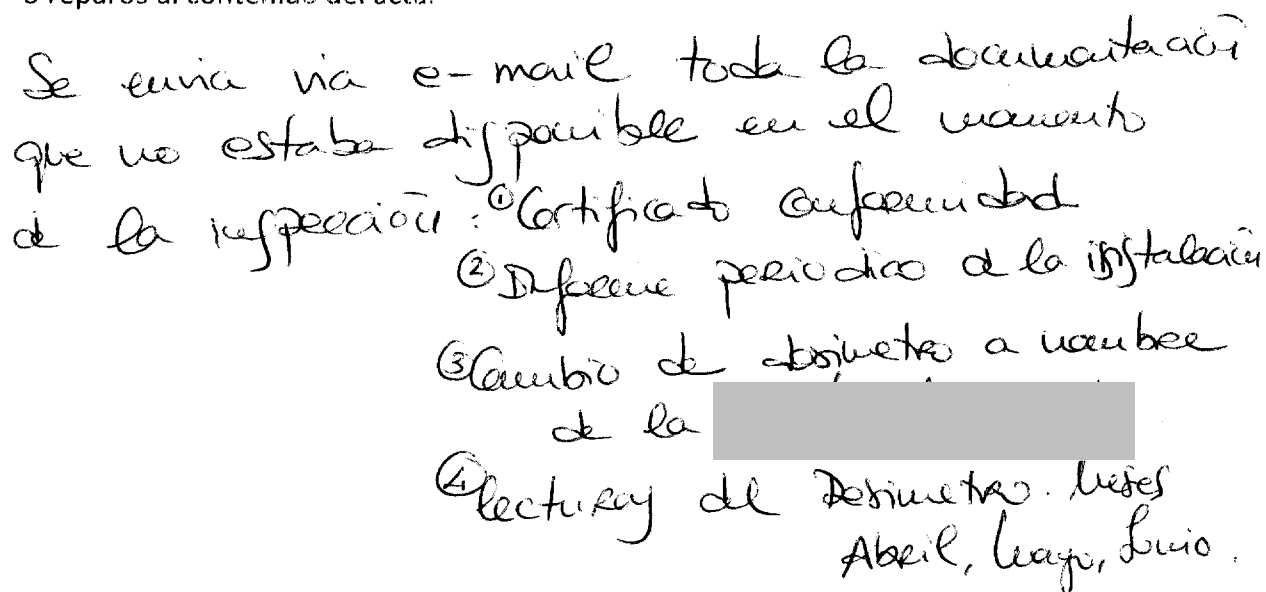 o reparos al contenido del acta.
Se envia via e-mail toda la documentación
que no estaba disponible en el momento
de la inspección: ① Certificado conformidad
② Informe periodico de la instalación
③ Cambio de dosimetro a nombre
de la
④ lecturas del Dosimetro. Meses
Abril, Mayo, Junio.